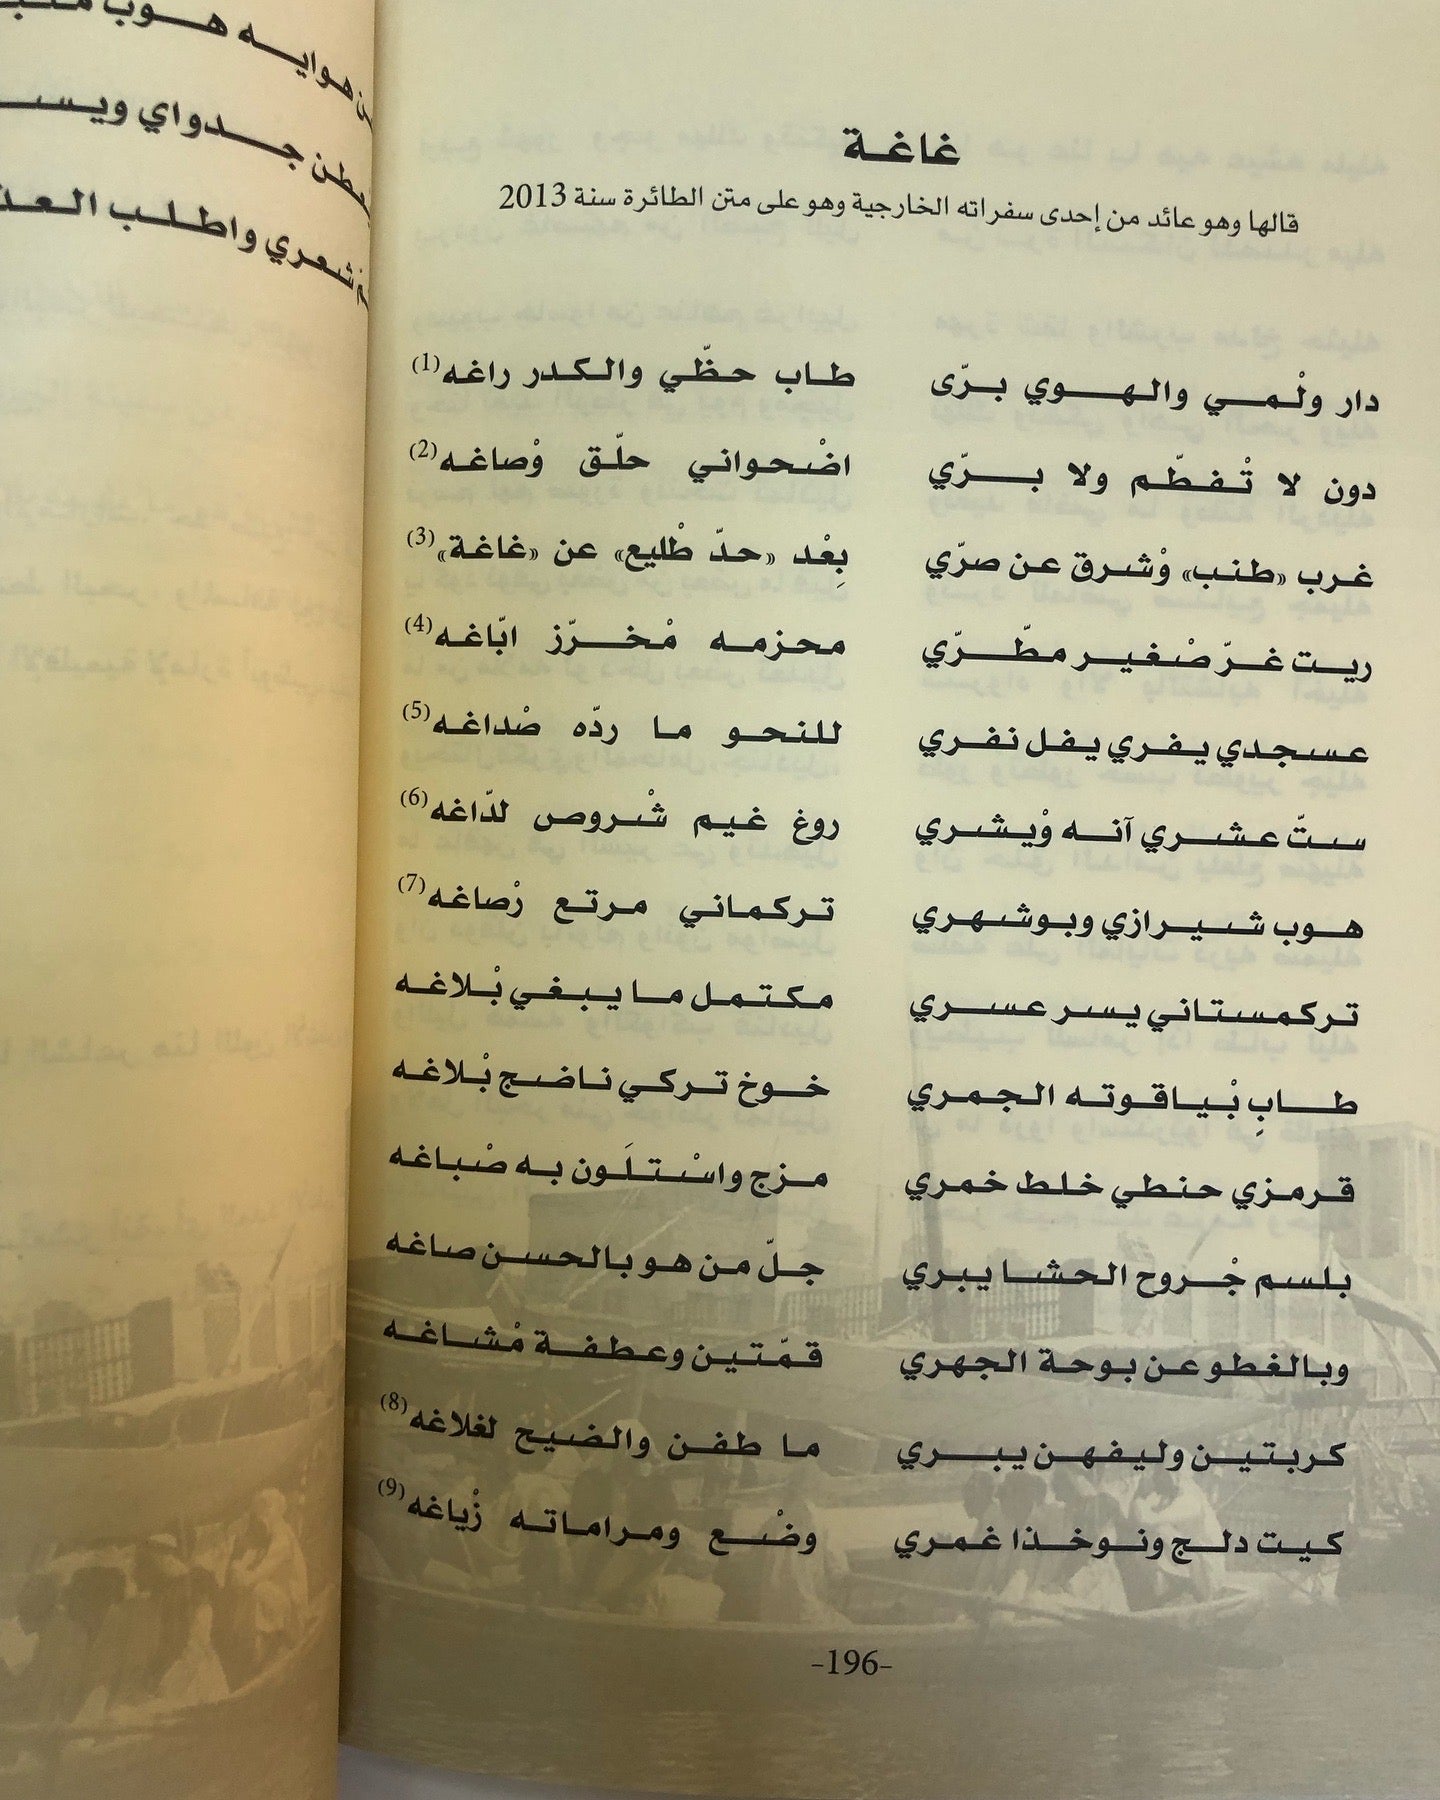 هوب
هوايه
جدواي
شعري واطلب
غاغة
قالها وهو عائد من إحدى سفراته الخارجية وهو على متن الطائرة سنة 2013
دار ولْمي والهوي برّى طاب حظّي والكدر راغه(1)
دون لا تْفطّم ولا برّي اضْحواني حلّق وْصاغه(2)
غرب «طنب» وْشرق عن صرّي بِعْد «حدّ طْليع» عن «غاغة»(3)
ريت غرّ صْغير مطّرّي محزمه مْخرّز ابّاغه(4)
عسجدي يفري يفل نفري للنحو ما ردّه صْداغه(5)
ستّ عشري آنه وْيشري روغ غيم شْروص لدّاغه(6)
هوب شيرازي وبوشهري تركماني مرتع رْصاغه(7)
تركمستاني يسر عسري مكتمل ما يبغي بْلاغه
طابِ بْياقوته الجمري خوخ تركي ناضج بْلاغه
قرمزي حنطي خلط خمري مزج واسْتلَون به صْباغه
بلسم جْروح الحشا يبري جلّ من هو بالحسن صاغه
وبالغطو عن بوحة الجهري قمّتين وعطفة مْشاغه
كربتين وليفهن يبري ما طفن والضيح لغلاغه(8)
كيت دلج ونوخذا غمري وضْع ومراماته زْياغه(9)
-196-